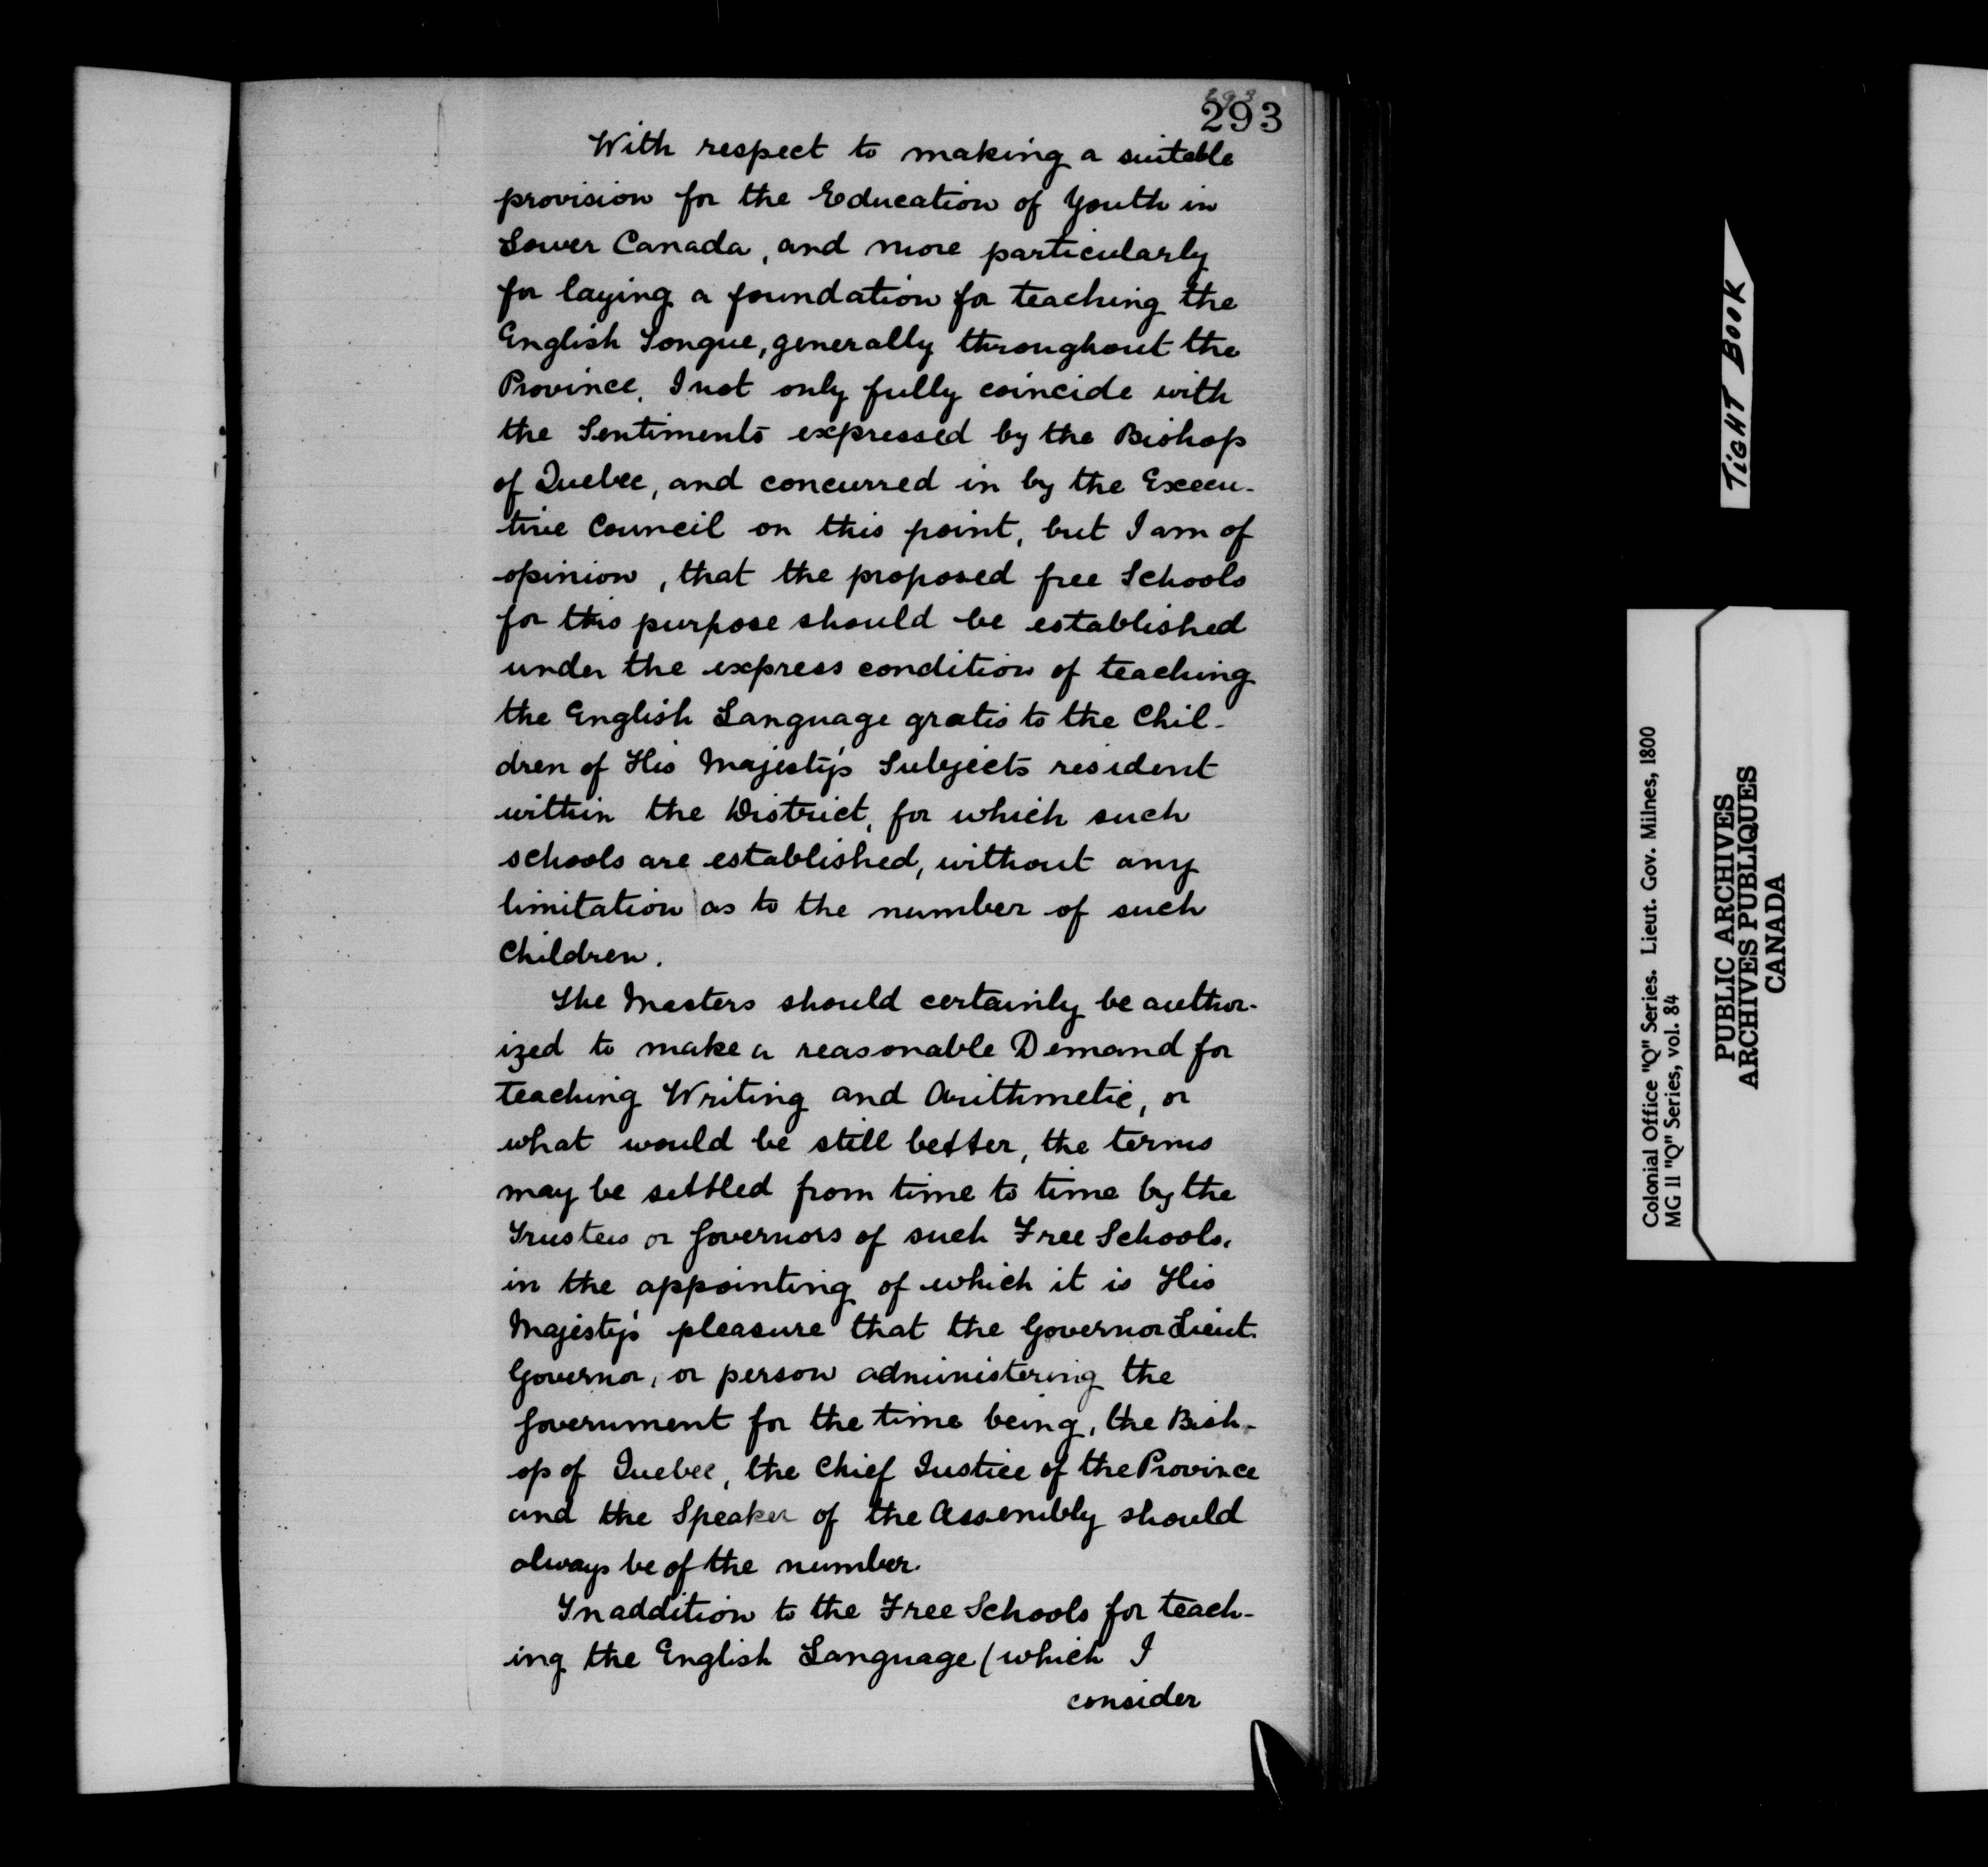 293
293
With respect to making a suitable
provision for the Education of Youth in
Lower Canada, and more particularly
for laying a foundation for teaching the
English Tongue, generally throughout the
Province, I not only fully coincide with
the Sentiments expressed by the Bishop
of Quebec, and concurred in by the Execu-
tive Council on this point, but I am of
opinion, that the proposed free Schools
for this purpose should be established
under the express condition of teaching
the English Language gratis to the Chil-
dren of His Majesty's Subjects resident
within the District, for which such
schools are established, without any
limitation as to the number of such
Children.
The Masters should certainly be author-
ized to make a reasonable Demand for
teaching Writing and Arithmetic, or
what would be still better, the terms
may be settled from time to time by the
Trustees or Governors of such Free Schools,
in the appointing of which it is His
Majesty's pleasure that the Governor Lieut.
Governor, or person administering the
Government for the time being, the Bish-
op of Quebec, the Chief Justice of the Province
and the Speaker of the Assembly should
always be of the number.
In addition to the Free Schools for teach-
ing the English Language (which I
consider
TIGHT BOOK
Colonial Office "Q" Series. Lieut. Gov. Milnes, 1800
MG 11 "Q" Series, vol. 84
PUBLIC ARCHIVES
ARCHIVES PUBLIQUES
CANADA